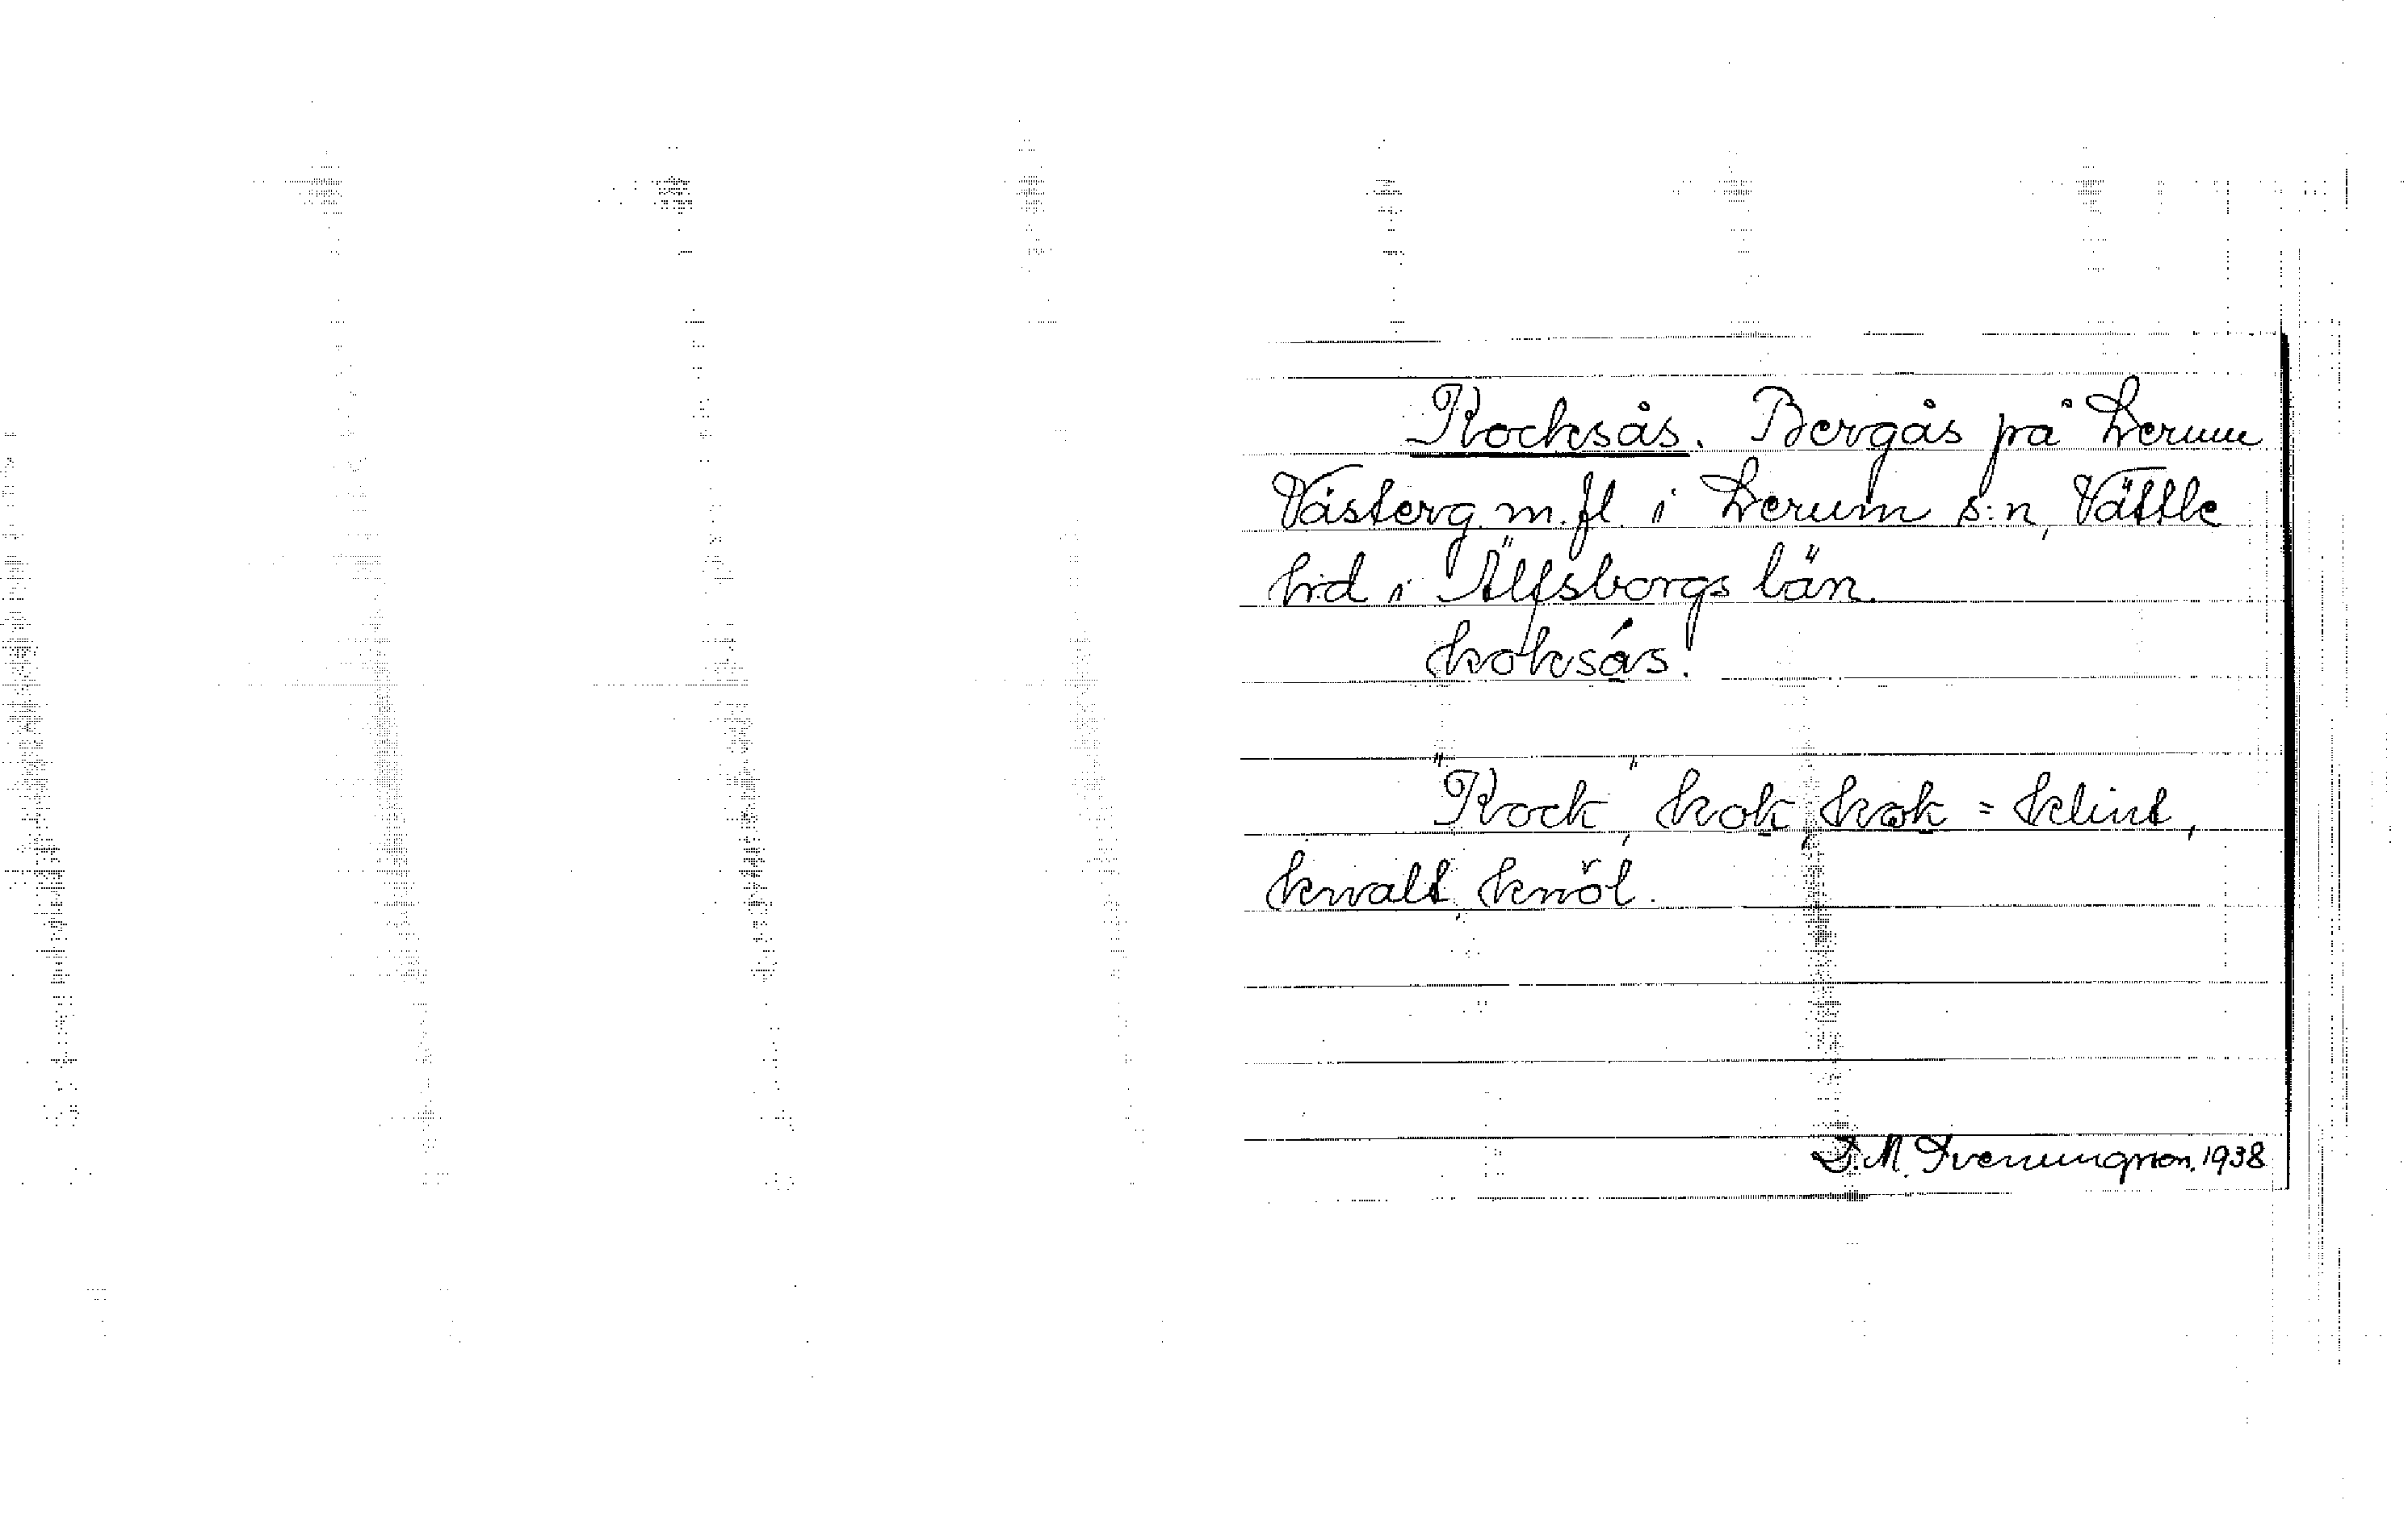 Kocksås. Bergås på Lerum
Västerg. m. fl. i Lerum s:n, Vättle
hd i Älfsborgs län.
koksås.
"Kock", kok, kok = klint,
knalt, knöl.
D. M. 1938